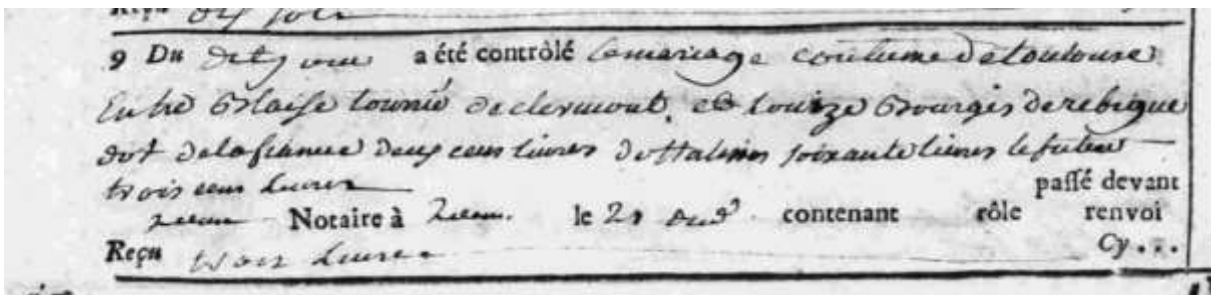 9 Du dit jour a été contrôlé le mariage coutume de toulouse
Entre Blaise tournié de clermont, et louize Bourges de rebigue
dot de la fiancée deux cens livres dottalices soixante livres le futeur
trois cens livres passé devant
Notaire à le 21 contenant rôle renvoi
Reçu trois Livres Cy...